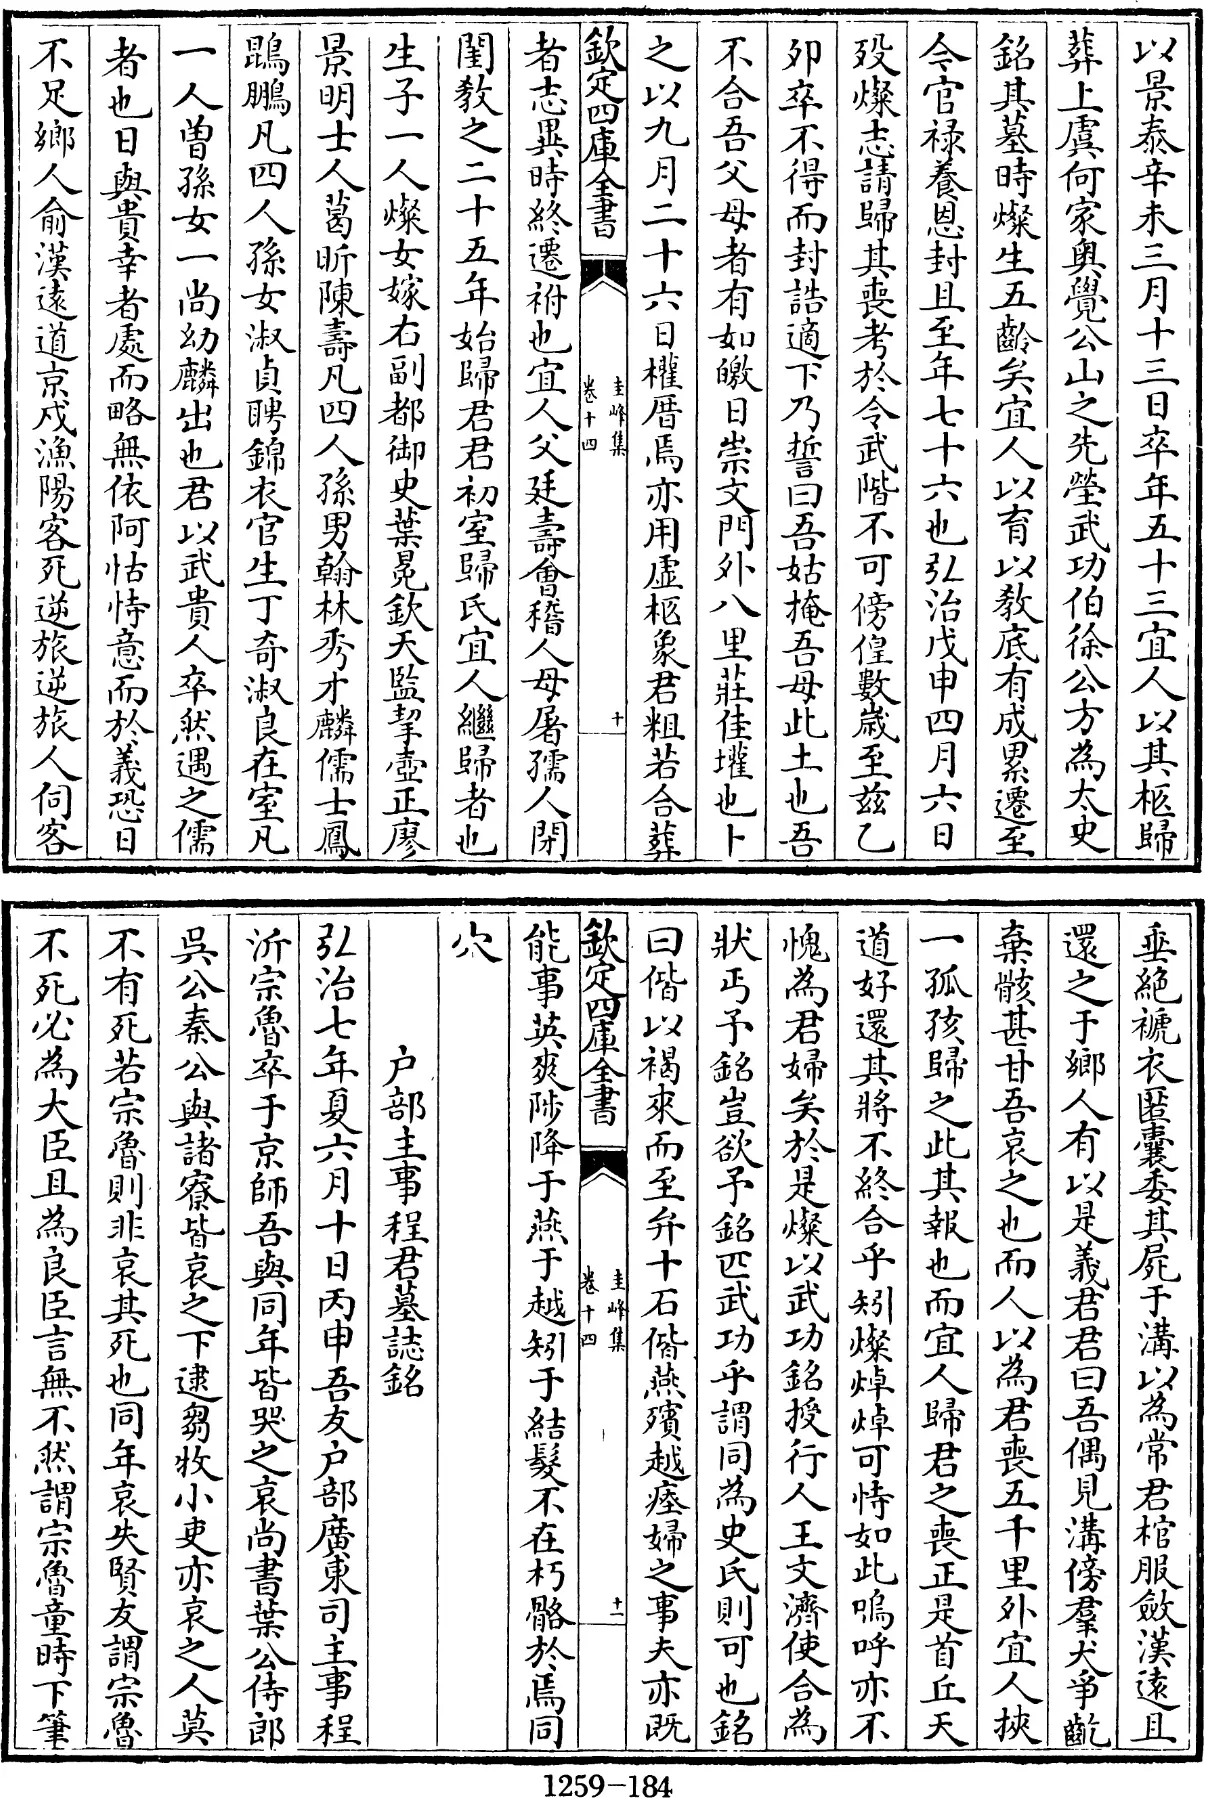 以景泰辛未三月十三日卒年五十三宜人以其柩歸
葬上虞何家奥覺公山之先塋武功伯徐公方為太史
銘其墓時燦生五齡矣宜人以育以教底有成累遷至
今官禄養恩封且至年七十六也弘治戊申四月六日
殁燦志請歸其喪考於令武階不可傍偟數歳至兹乙
夘卒不得而封誥適下乃誓曰吾姑掩吾母此土也吾
不合吾父母者有如皦日崇文門外八里莊佳壠也卜
之以九月二十六日權厝焉亦用虚柩象君粗若合葬
欽定四庫全書
圭峰集
卷十四
十
者志異時終遷祔也宜人父廷壽會稽人母屠孺人閉
閨教之二十五年始歸君君初室歸氏宜人繼歸者也
生子一人燦女嫁右副都御史葉冕欽天監挈壺正廖
景明士人葛昕陳壽凡四人孫男翰林秀才麟儒士鳳
鵾鵬凡四人孫女淑貞聘錦衣官生丁奇淑良在室凡
一人曽孫女一尚幼麟出也君以武貴人卒然遇之儒
者也日與貴幸者處而略無依阿怙恃意而於義恐日
不足鄉人俞漢遠道京戍漁陽客死逆旅逆旅人伺客
垂絶褫衣匿囊委其屍于溝以為常君棺服斂漢逺且
還之于鄉人有以是義君君曰吾偶見溝傍羣犬爭齕
棄骸甚甘吾哀之也而人以為君喪五千里外宜人挾
一孤孩歸之此其報也而宜人歸君之喪正是首丘天
道好還其將不終合乎矧燦焯焯可恃如此嗚呼亦不
愧為君婦矣於是燦以武功銘授行人王文濟使合為
狀丐予銘豈欲予銘匹武功乎謂同為史氏則可也銘
曰偕以褐來而至弁十石偕燕殯越瘞婦之事夫亦既
欽定四庫全書
圭峰集
卷十四
十一
能事英爽陟降于燕于越矧于結髮不在朽骼於焉同
穴
户部主事程君墓誌銘
弘治七年夏六月十日丙申吾友户部廣東司主事程
沂宗魯卒于京師吾與同年皆哭之哀尚書葉公侍郎
吳公秦公與諸寮皆哀之下逮芻牧小吏亦哀之人莫
不有死若宗魯則非哀其死也同年哀失賢友謂宗魯
不死必為大臣且為良臣言無不然謂宗魯童時下筆
1259-184